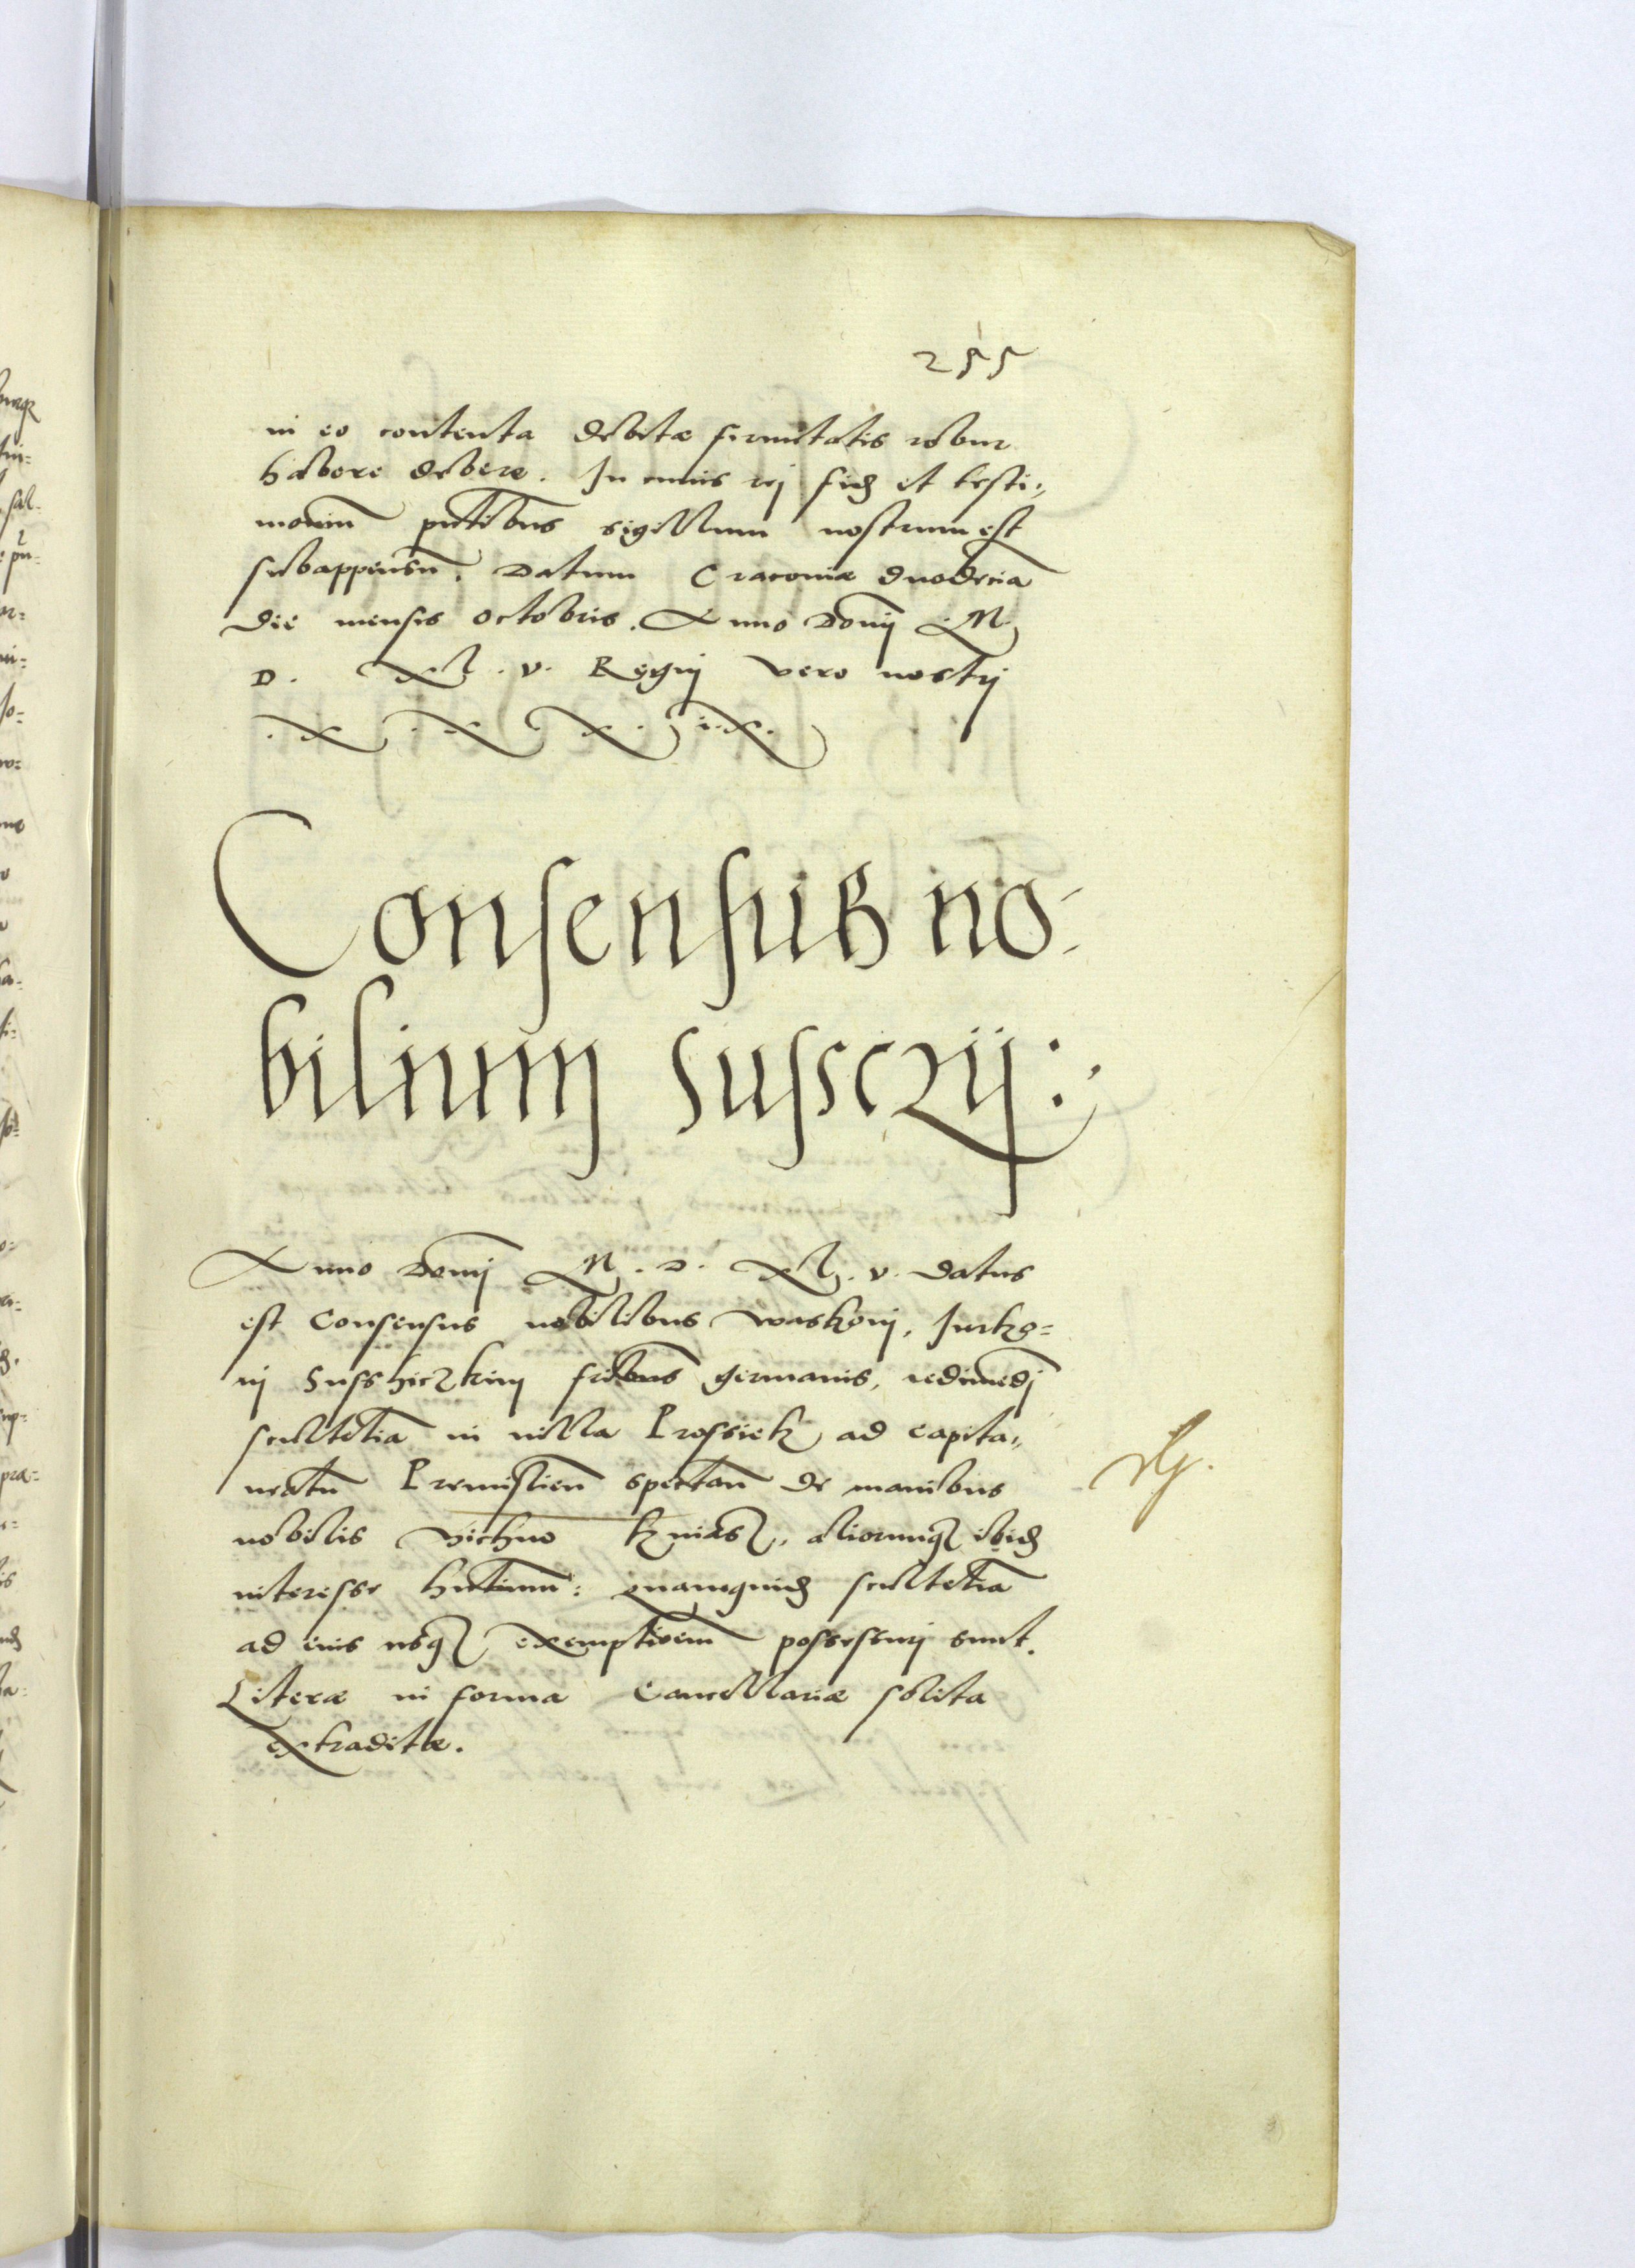 255
in eo contenta debitæ firmitatis robur
habere debere. In cuius rej fidẽ et testi:,
moniũ pñtibus sigillum nostrum est
subappensũ. Datum Cracoviæ duodecia
die mensis Octobris. Anno Domĩ M.
D. XL. V. Regnj vero nostrj
X. X. X. iX.
Consensus no:
bilium Susscrij:
Anno Domĩ M. D. XL. V. datus
est Consensus nobilibus Waskonj, Jurko=
nj frĩbus germanis, redimẽdj
scultetiã in villa Prossiek ad Capita:,
neatũ Premislieñ spectañ de manibus
nobilis Kniasz,, aliorumq ibidẽ
interesse hñtium: quamquidẽ scultetiã
ad eius usq exemptioẽm possessurj sunt.
Literæ in forma Cancellariæ solita
extraditæ.